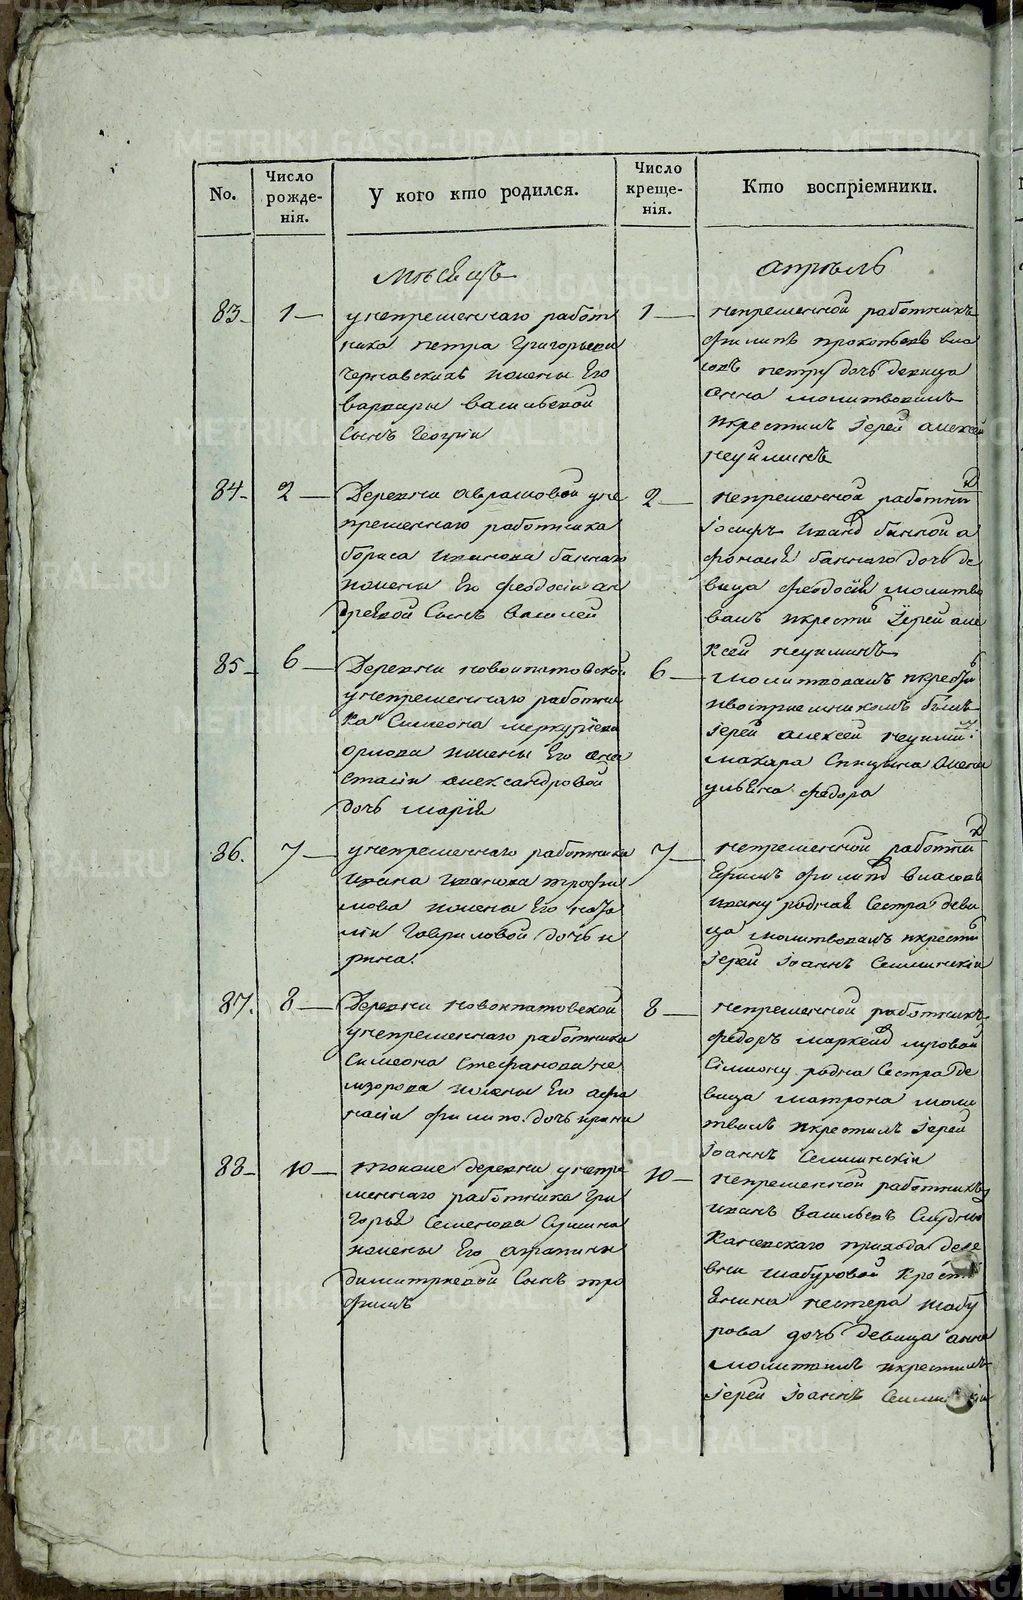 No.
Число рожде-нія.
У кого кто родился.
Число креще-нія.
Кто воспріемники.
Мѣсяцъ
апрѣль
83
1
унепременнаго работ
ника петра григорьева
чернавскихъ ижены Его
варвары васильевой
Сынъ Георгiи
1
непременной работникъ
филипъ прокопьевъ вла
совъ петру дочь девица
анна молитвовалъ
икрестилъ Iерей алексей
неуиминъ
84
2
Деревни аврамовой уне
пременнаго работника
бориса иванова баннаго
ижены Его феодосiи ан
дреевой Сынъ василей
2
непременной работни
Iосифъ иванов банной а
фонасiя баннаго дочь де
вица феодосiя молитво
валъ икрести Iерей але
ксей неуиминъ
85
6
Деревни новоипатовской
унепременнаго работни
ка Симеона меркурiева
орлова ижены Его ана
стасiи александровой
дочь марiя
6
молитвовалъ икрести
ивосприемникомъ былъ
Iерей алексей неуими
макара Спицина
ульяна федора
86.
7
унепременнаго работника
ивана иванова трофи
мова ижены Его ната
лiи гавриловой дочь и
рина.
7
непременной работни
Ефимъ филипов власовъ
ивану родная Сестра деви
ца молитвовалъ икрести
Iерей Iоаннъ Селминскiи
87.
8
Деревни новоипатовской
унепременнаго работника
Симеона Стефанова не
мзорова ижены Его афа
насiи филипо. дочь ирина
8
непременной работникъ
федоръ маркелов луговой
Симиону родна Сестра де
вица матрона моли
твилъ икрестилъ Iерей
Iоаннъ Селминскiи
88
10
тоиже деревни унепре
меннаго работника Гри
горья Семенова Сушина
ижены Его агрипины
димитриевой Сынъ тро
фимъ
10
непременной работникъ
иванъ васильевъ
Каневскаго прихода дере
вни шабуровой Крести
янина нестера шабу
рова дочь девица анна
молитвилъ икрестилъ
Iерей Iоаннъ
METRIKI.GASO-URAL.RU